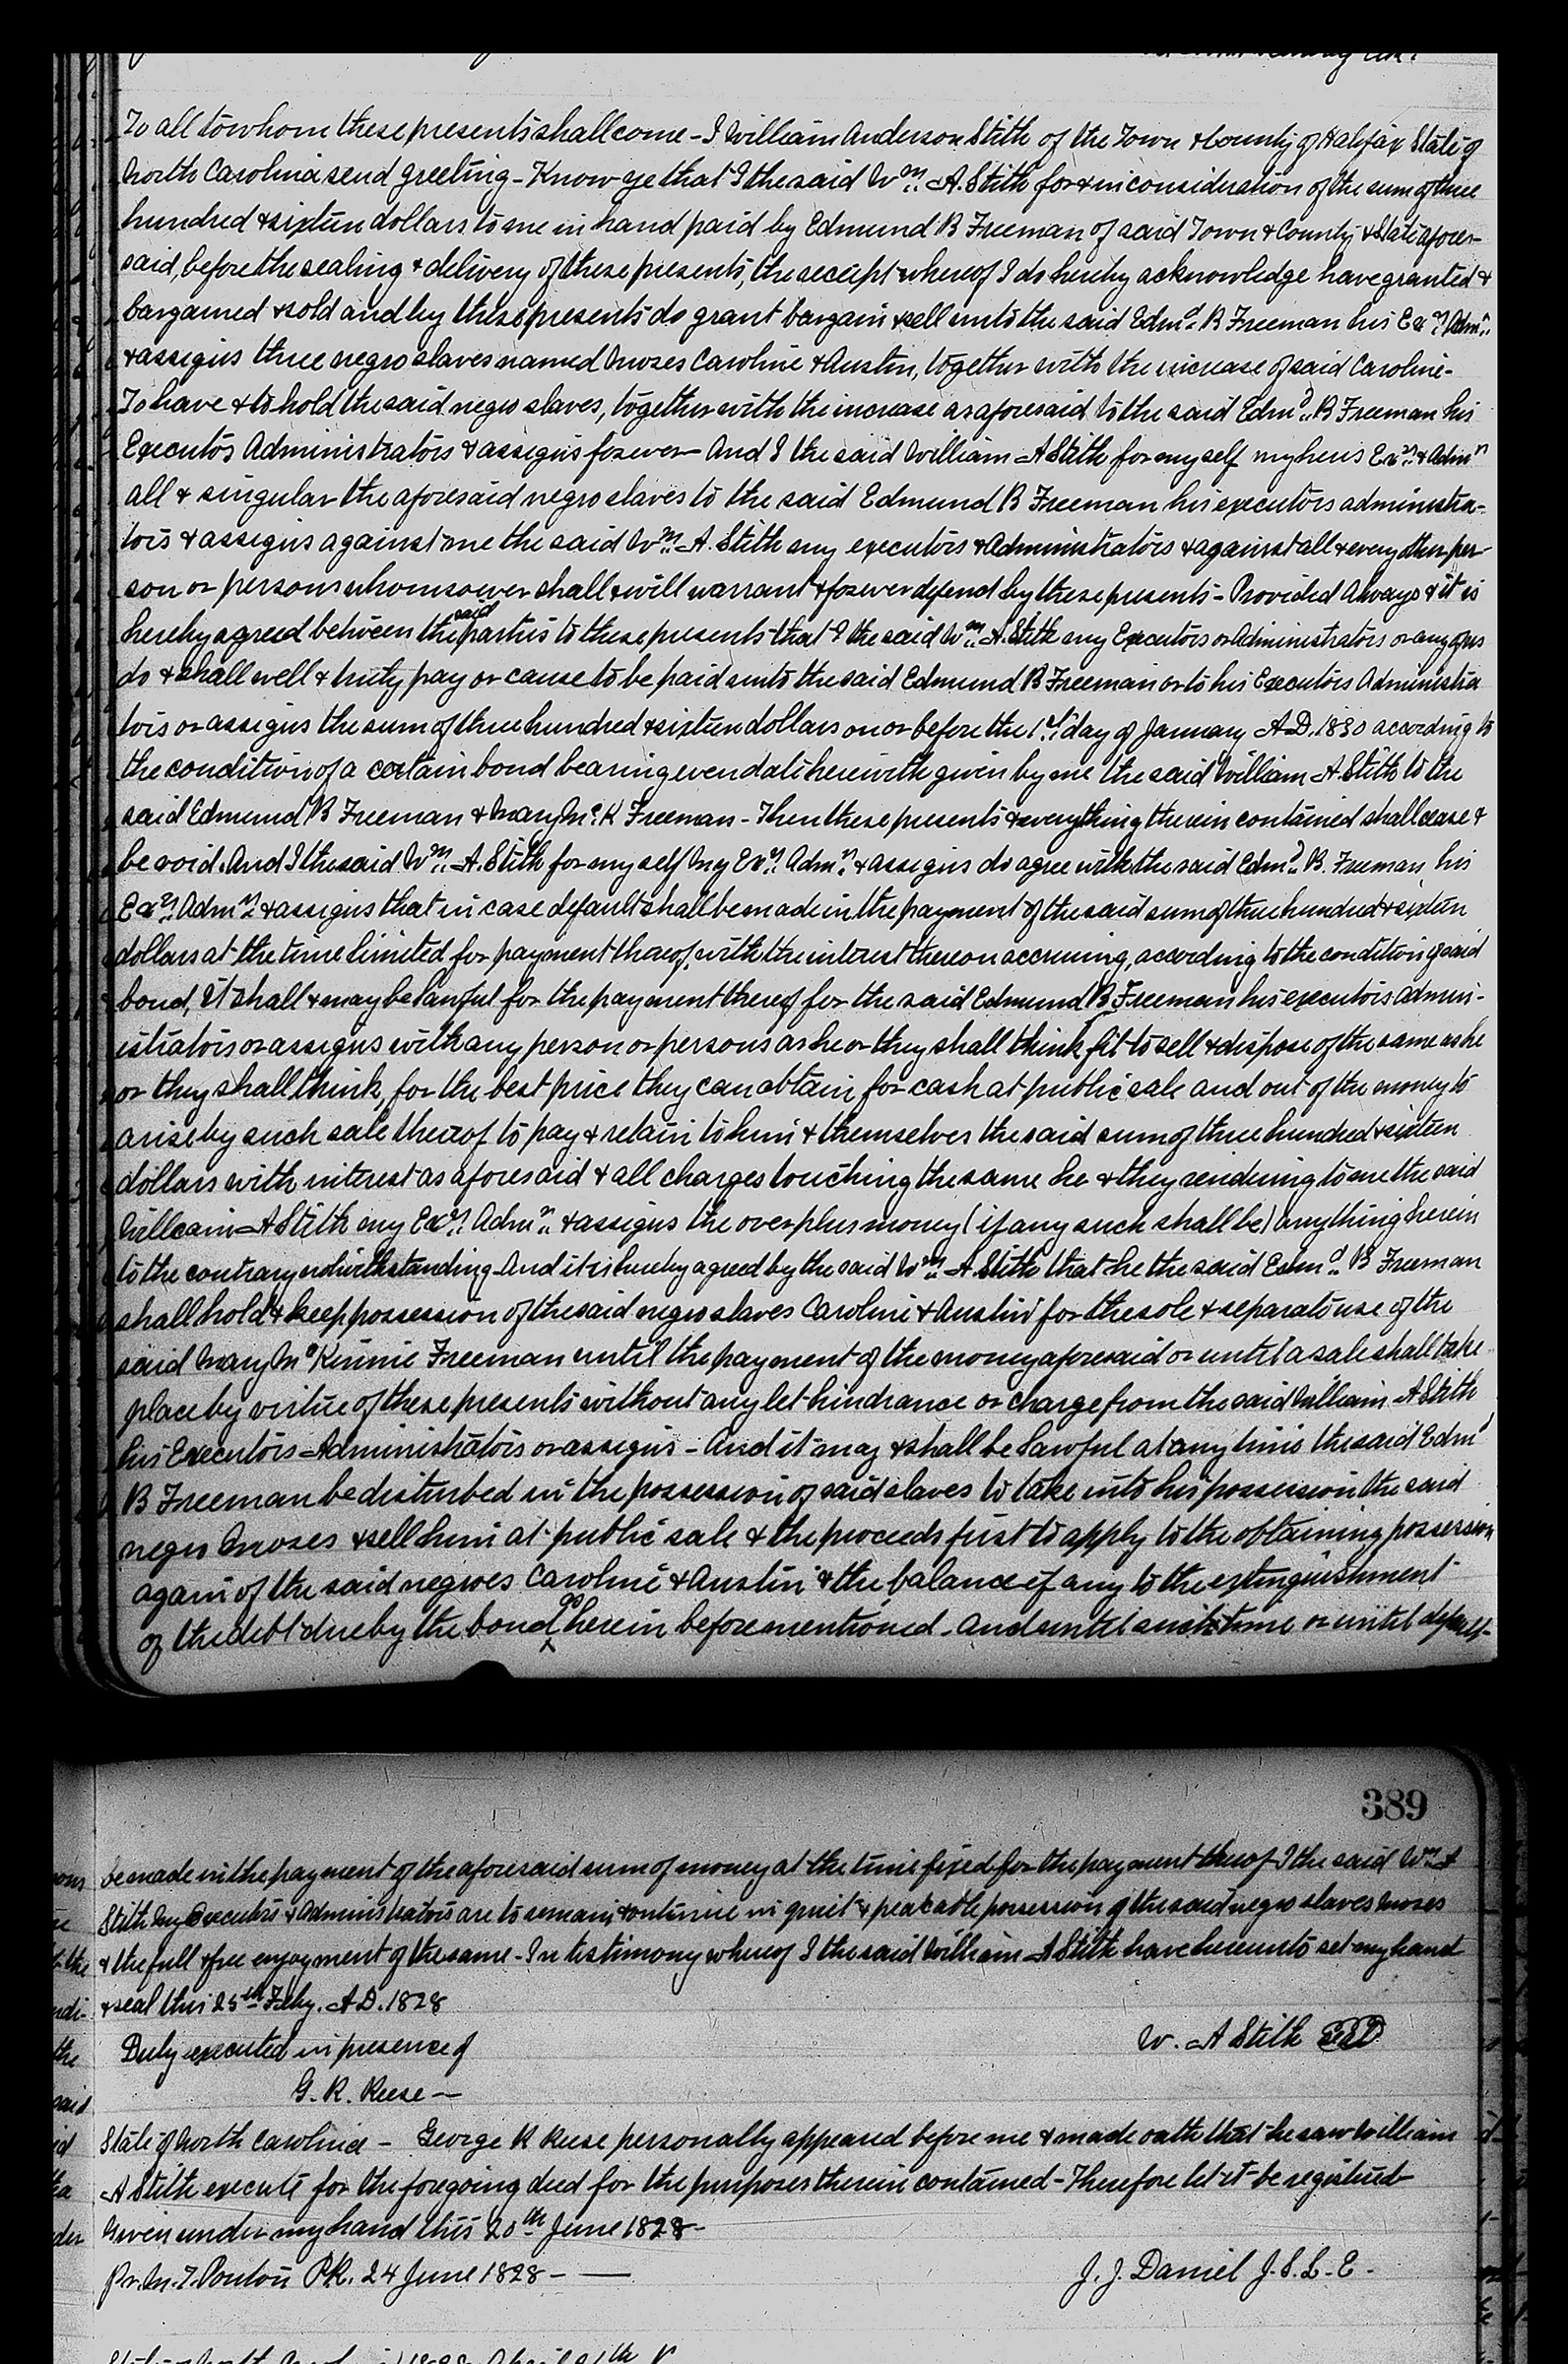 To all to whom these presents shall come - I William Anderson Stith of the Town & County of Halifax State of
North Carolina send greeting - Know ye that I the said Wm. A. Stith for & in consideration of the sum of three
hundred & sixteen dollars to me in hand paid by Edmund B Freeman of said Town & County & State afore-
said, before the sealing & delivery of these presents, the receipt whereof I do hereby acknowledge have granted &
bargained & sold and by these presents do grant bargain & sell unto the said Edmd. B Freeman his Exrs. Admrs.
& assigns three negro slaves named Moses Caroline & Austin, together with the increase of said Caroline -
To have & to hold the said negro slaves, together with the increase as aforesaid to the said Edmd. B Freeman his
Executors Administrators & assigns forever - And I the said William A Stith for myself my heirs Exrs. & Admrs
all & singular the aforesaid negro slaves to the said Edmund B Freeman his executors administra-
tors & assigns against me the said Wm. A. Stith my executors & Administrators & against all & every other per-
son or persons whomsoever shall & will warrant & forever defend by these presents - Provided Always & it is
hereby agreed between the said parties to these presents that I the said Wm. A. Stith my Executors or Administrators or any of us
do & shall well & truly pay or cause to be paid unto the said Edmund B Freeman or to his Executors Administra
tors or assigns the sum of three hundred & sixteen dollars on or before the 1st. day of January A.D. 1830 acording to
the condition of a certain bond bearing even date herewith given by me the said William A. Stith to the
said Edmund B Freeman & Mary Mc.K Freeman - Then these presents & everything therein contained shall cease &
be void. And I the said Wm. A. Stith for myself my Exrs. Admrs. & assigns do agree with the said Edmd. B. Freeman his
Exrs. Admrs. & assigns that in case default shall be made in the payment of the said sum of three hundred & sixteen
dollars at the time limited for payment thereof, with the interest thereon accruing, according to the condition of said
bond, it shall & may be lawful for the payment thereof for the said Edmund B Freeman his executors admin-
istrators or assigns with any person or persons as he or they shall think fit to sell & dispose of the same as he
or they shall think, for the best price they can obtain for cash at public sale and out of the money to
arise by such sale thereof to pay & retain to him & themselves the said sum of three hundred & sixteen
dollars with interest as aforesaid & all charges touching the same he & they rendering to me the said
William A Stith my Exrs. Admrs. & assigns the overplus money (if any such shall be) anything herein
to the contrary notwithstanding And it is hereby agreed by the said Wm. A. Stith that he the said Edmd. B Freeman
shall hold & keep possession of the said negro slaves Caroline & Austin for the sole & separate use of the
said Mary McKinnie Freeman until the payment of the money aforesaid or until a sale shall take
place by virtue of these presents without any let hindrance or charge from the said William A Stith
his Executors Administrators or assigns - And it may & shall be lawful at any time the said Edmd
B Freeman be disturbed in the possession of said slaves to take into his possession the said
negro Moses & sell him at public sale & the proceeds first to apply to the obtaining possession
again of the said negroes Caroline & Austin & the balance if any to the extinguishment
of the debt due by the bond as herein before mentioned - And until such time or until default
389
be made in the payment of the aforesaid sum of money at the time fixed for the payment thereof I the said Wm. A
Stith my Executors & Administrators are to remain & continue in quiet & peacable possession of the said negro slaves Moses
& the full & free enjoyment of the same - In testimony whereof I the said William A Stith have hereunto set my hand
& seal this 25th Feby. A.D. 1828
W. A Stith Seal
Duly executed in presence of
G. R. Reese -
State of North Carolina - George R Reese personally appeared before me & made oath that he saw William
A Stith execute for the foregoing deed for the purposes therein contained - Therefore let it be registered
Given under my hand this 20th June 1828 -
J. J. Daniel J.S.L.E.
Pr. M. T. Ponton PR. 24 June 1828 -